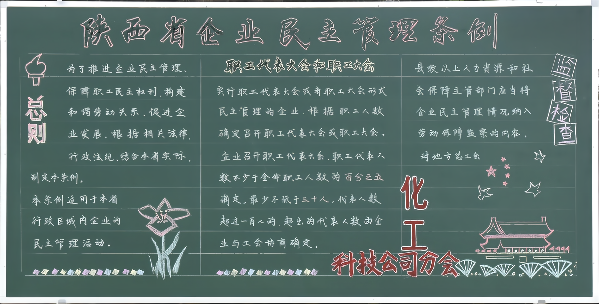 陕西省企业民主管理条例
总则
为了推进企业民主管理,
保障职工民主权利,构建
和谐劳动关系,促进企
业发展,根据相关法律、
行政法规,结合本省实际,
制定本条例。
本条例适用于本省
行政区域内企业的
民主管理活动。
职工代表大会和职工大会
实行职工代表大会或者职工大会形式
民主管理的企业,根据职工人数
确定召开职工代表大会或职工大会。
企业召开职工代表大会,职工代表人
数不少于全体职工人数的百分之五
确定,最少不低于三十人。代表人数
超过一百人的,超出的代表人数由企
业与工会协商确定。
监督检查
县级以上人力资源和社
会保障主管部门应当将
企业民主管理情况纳入
劳动保障监察的内容。
对地方总工会
化工
科技公司分会